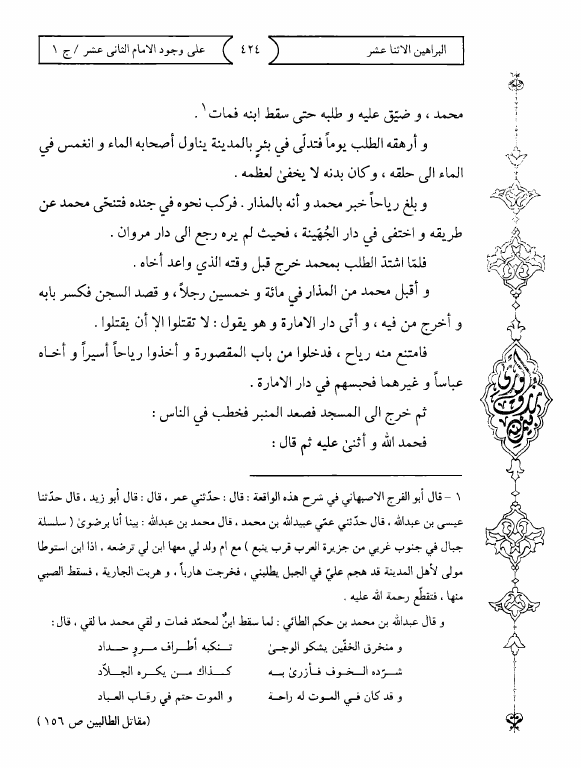 البراهين الاثنا عشر
٤٢٤
على وجود الامام الثاني عشر / ج ١
محمد ، و ضيّق عليه و طلبه حتى سقط ابنه فمات١ .
و أرهقه الطلب يوماً فتدلّى في بئرٍ بالمدينة يناول أصحابه الماء و انغمس في
الماء الى حلقه ، وكان بدنه لا يخفىٰ لعظمه .
و بلغ رياحاً خبر محمد و أنه بالمذار . فركب نحوه في جنده فتنحّى محمد عن
طريقه و اختفى في دار الجُهَينة ، فحيث لم يره رجع الى دار مروان .
فلمّا اشتدّ الطلب بمحمد خرج قبل وقته الذي واعد أخاه .
و أقبل محمد من المذار في مائة و خمسين رجلاً ، و قصد السجن فكسر بابه
و أخرج من فيه ، و أتى دار الامارة و هو يقول : لا تقتلوا الا أن يقتلوا .
فامتنع منه رياح ، فدخلوا من باب المقصورة و أخذوا رياحاً أسيراً و أخاه
عباساً و غيرهما فحبسهم في دار الامارة .
ثم خرج الى المسجد فصعد المنبر فخطب في الناس :
فحمد الله و أثنىٰ عليه ثم قال :
١ - قال أبو الفرج الاصبهاني في شرح هذه الواقعة : قال : حدّثني عمر ، قال : قال أبو زيد ، قال حدّثنا
عيسى بن عبدالله ، قال حدّثني عمّي عبيدالله بن محمد ، قال محمد بن عبدالله : بينا أنا برضوىٰ ( سلسلة
جبال في جنوب غربي من جزيرة العرب قرب ينبع ) مع ام ولد لي معها ابن لي ترضعه ، اذا ابن استوطا
مولى لأهل المدينة قد هجم عليّ في الجبل يطلبني ، فخرجت هارباً ، و هربت الجارية ، فسقط الصبي
منها ، فتقطّع رحمة الله عليه .
و قال عبدالله بن محمد بن حكم الطائي : لما سقط ابنٌ لمحمّد فمات و لقي محمد ما لقي ، قال :
و منخرق الخفّين يشكو الوجىٰ تـنكبه أطراف مـرو حـداد
شـرّده الـخوف فـأزرىٰ بـه كـذاك مـن يكـره الجـلاّد
و قد كان فـي الموت له راحـة و الموت حتم في رقاب العباد
(مقاتل الطالبين ص ١٥٦)